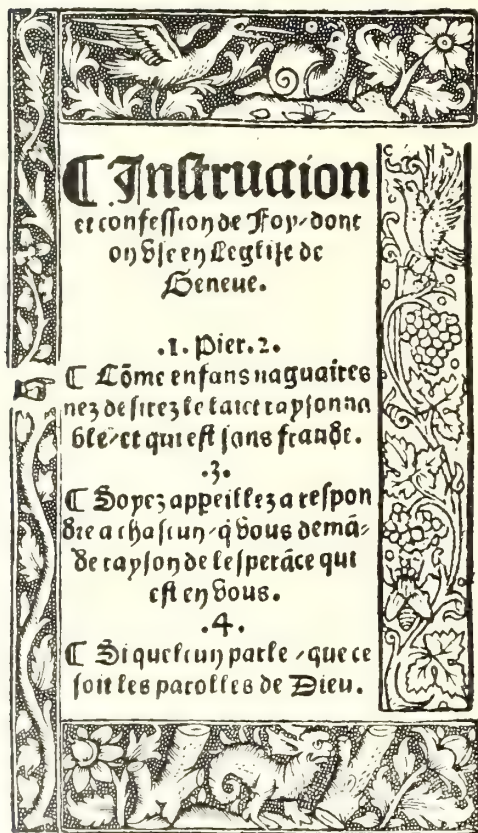 ¶ Instruction
et confession de Foy/ dont
on vse en Leglise de
Geneue.
.1. Pier. 2.
¶ Cõme enfans naguaires
nez desirez le laict raysonna
ble/ et qui est sans fraude.
.3.
¶ Soyez appeillez a respon
dre a chascun/ q̃ vous demã/
de rayson de lesperãce qui
est en vous.
.4.
¶ Si quelcun parle/ que ce
soit les parolles de Dieu.